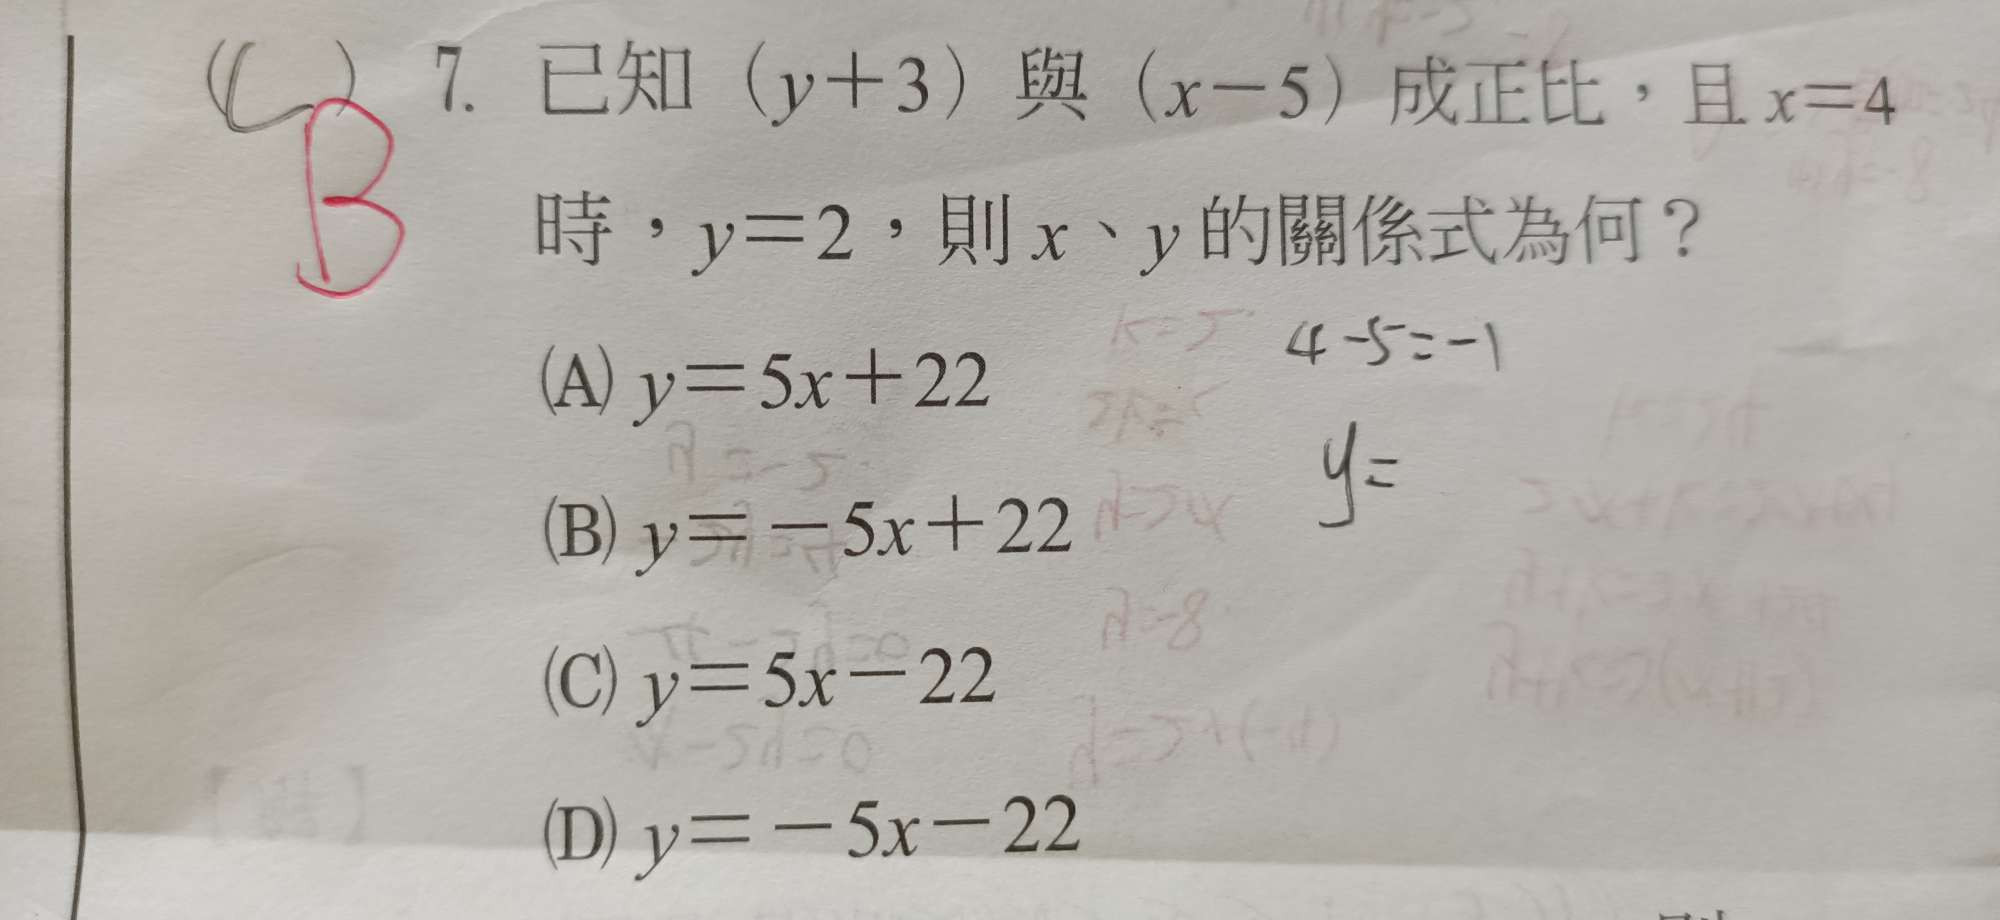 (C) 7. 已知（y＋3）與（x－5）成正比，且 x＝4
B
時，y＝2，則 x、y 的關係式為何？
(A) y＝5x＋22
4-5=-1
(B) y＝－5x＋22
y=
(C) y＝5x－22
(D) y＝－5x－22